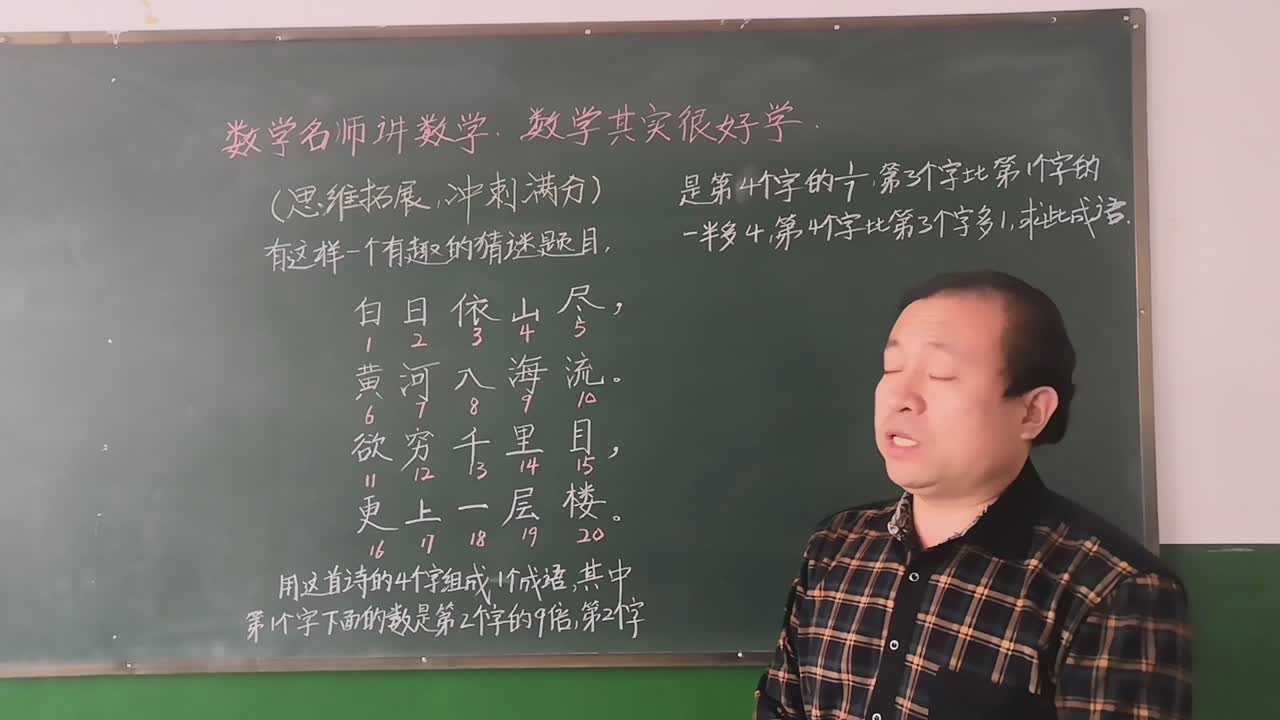 数学名师讲数学.数学其实很好学.
(思维拓展,冲刺满分)
有这样一个有趣的猜谜题目,
白日依山尽,
1 2 3 4 5
黄河入海流。
6 7 8 9 10
欲穷千里目,
11 12 13 14 15
更上一层楼。
16 17 18 19 20
用这首诗的4个字组成1个成语,其中
第1个字下面的数是第2个字的9倍,第2个字
是第4个字的1/7,第3个字比第1个字的
一半多4,第4个字比第3个字多1,求此成语.